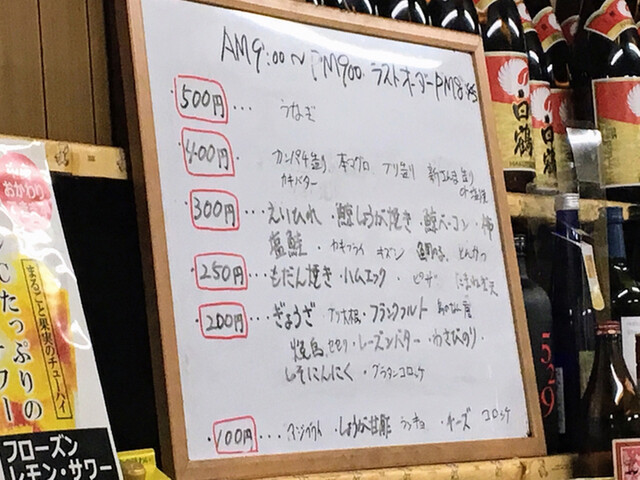 AM9:00～PM900 ラストオーダーPM8:45
500円… うなぎ
400円… カンパチ造り 本マグロ ブリ造り 新さんま造り or 塩焼
カキバター
300円…えいひれ・鯨しょうが焼き・鯨ベーコン・
塩鮭・カキフライ とんかつ
250円…もだん焼き・ハムエッグ・ピザ
200円…ぎょうざ フランクフルト
焼鳥 セセリ・レーズンバター・わさびのり・
しそにんにく・グラタンコロッケ
100円… しょうが甘酢 ラッキョ・チーズ コロッケ
おかわり
まるごと果実のチューハイ
たっぷりの
フローズン
レモン・サワー
白鶴
白鶴
白鶴
529